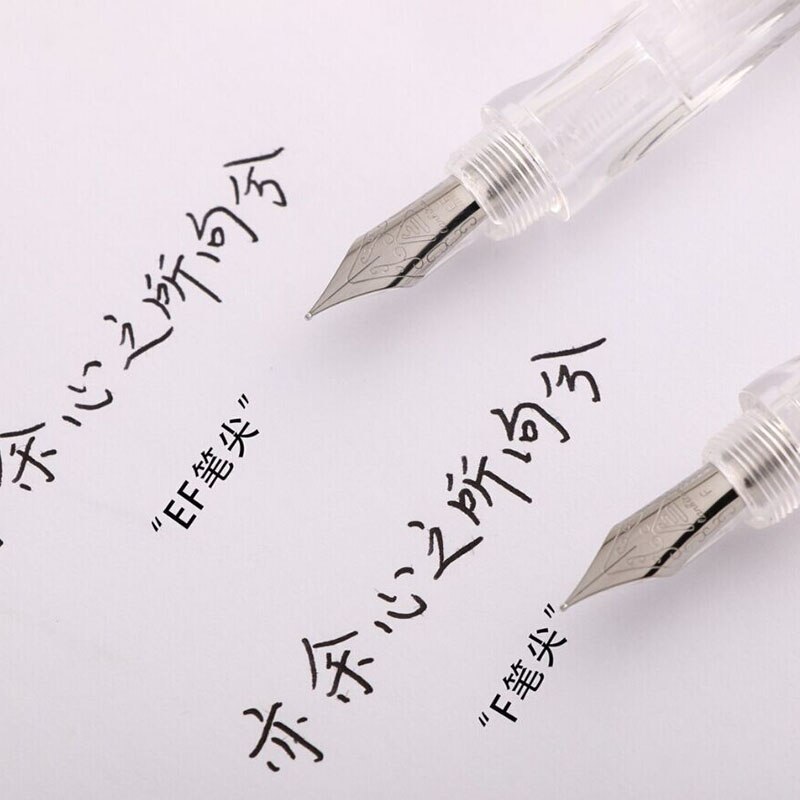 余心之所向兮
“EF笔尖”
亦余心之所向兮
“F笔尖”
F